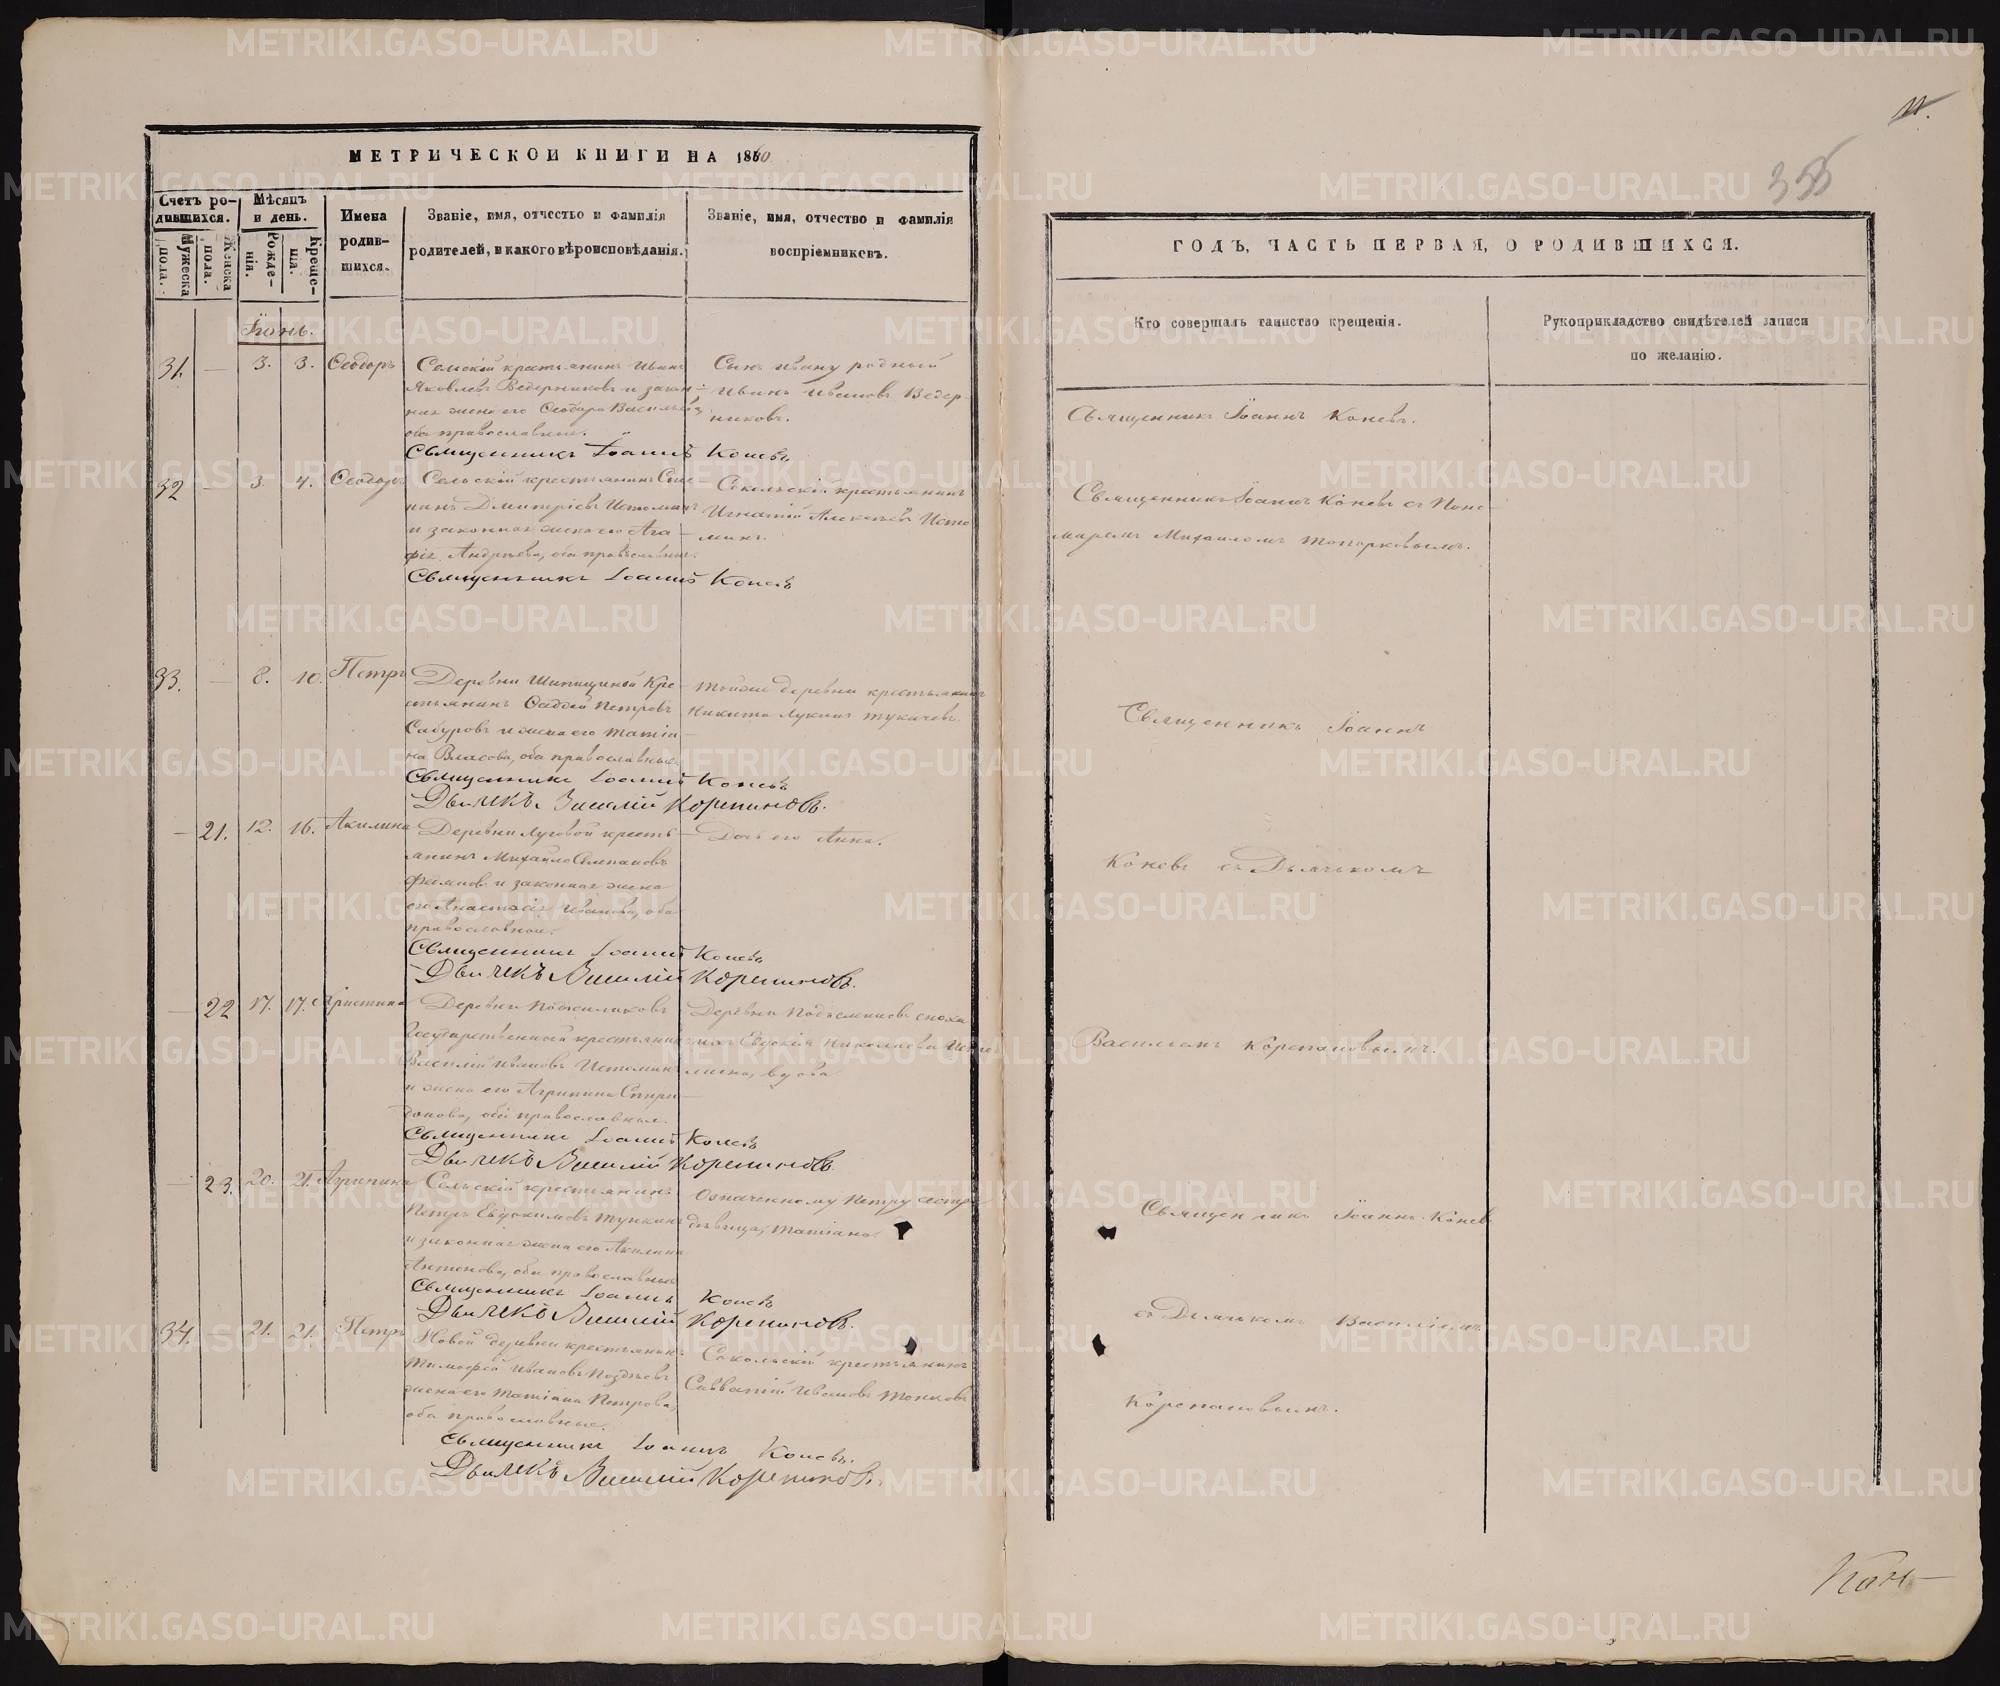 МЕТРИЧЕСКОЙ КНИГИ НА 1860
Счетъ родившихся.
Мужеска пола.
Женска пола.
Мѣсяцъ и день.
Рожденія.
Крещенія.
Имена родившихся.
Званіе, имя, отчество и фамилія
родителей, и какого вѣроисповѣданія.
Званіе, имя, отчество и фамилія
воспріемниковъ.
Іюнь.
31. — 3. 3. Ѳеодоръ
крестьянинъ Иванъ
Яковлевъ Ведерниковъ и закон-
ная жена его Ѳеодора Васильева,
оба православные.
Сынъ Ивану родный
Иванъ Ивановъ Ведер-
никовъ.
Священникъ Іоаннъ Коневъ
32 — 3. 4. Ѳеодоръ
Сельскій крестьянинъ
Дмитріевъ Истоминъ
и законная жена его Ага-
фія Андреева, оба православные.
Сокольскій крестьянинъ
Игнатій Алексѣевъ Исто-
минъ.
Священникъ Іоаннъ Коневъ
33. — 8. 10. Петръ
Деревни Шипициной Кре-
стьянинъ Ѳаддей Петровъ
Сабуровъ и жена его Татіа-
на Власова, оба православные.
Тойже деревни крестьянинъ
Никита Лукинъ
Священникъ Іоаннъ Коневъ
Дьячекъ Василій Корепановъ.
— 21. 12. 16. Акилина
Деревни Луговой кресть-
янинъ Михайло Степановъ
и законная жена
его Анастасія Иванова, оба
православные.
Дочь его Анна.
Священникъ Іоаннъ Коневъ
Дьячекъ Василій Корепановъ.
— 22 17. 17. Христина
Деревни
Государственный крестьянинъ
Василій Ивановъ Истоминъ
и жена его Агрипина Спири-
донова, оба православные.
Деревни
Евдокія Николаева Исто-
мина, вдова
Священникъ Іоаннъ Коневъ
Дьячекъ Василій Корепановъ
— 23. 20. 21. Агрипина
Сельскій крестьянинъ
Петръ Евдокимовъ
и законная жена его Акилина
Антонова, оба православные
Означенному Петру сестра
дѣвица, Татіана.
Священникъ Іоаннъ Коневъ
Дьячекъ Василій Корепановъ.
34. — 21. 21. Петръ
Новой деревни крестьянинъ
Тимофей Ивановъ Поздѣевъ
жена его Татіана Петрова,
оба православные.
Сокольскій крестьянинъ
Савватій Ивановъ Тонковъ
Священникъ Іоаннъ Коневъ.
Дьячекъ Василій Корепановъ.
11.
355
ГОДЪ, ЧАСТЬ ПЕРВАЯ, О РОДИВШИХСЯ.
Кто совершалъ таинство крещенія.
Рукоприкладство свидѣтелей записи
по желанію.
Священникъ Іоаннъ Коневъ.
Священникъ Іоаннъ Коневъ съ Поно-
маремъ Михаиломъ Топорковымъ.
Священникъ Іоаннъ
Коневъ съ Дьячкомъ
Василіемъ Корепановымъ.
Священникъ Іоаннъ Коневъ
съ Дьячкомъ Василіемъ
Корепановымъ.
METRIKI.GASO-URAL.RU